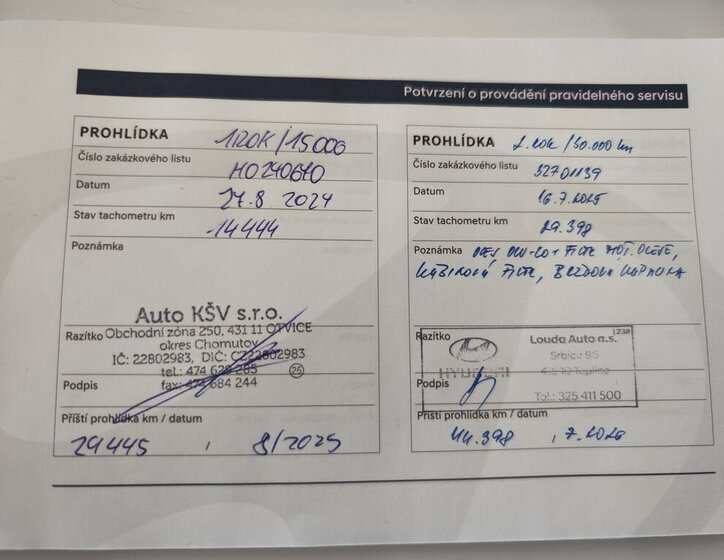 Potvrzení o provádění pravidelného servisu
PROHLÍDKA 1 ROK / 15 000
Číslo zakázkového listu HO240670
Datum 27.8 2024
Stav tachometru km 14444
Poznámka
Auto KŠV s.r.o.
Razítko Obchodní zóna 250, 431 11 OTVICE
okres Chomutov
IČ: 22802983, DIČ: CZ22802983
tel.: 474 628 285
26
Podpis fax: 474 684 244
Příští prohlídka km / datum
29445 , 8/2025
PROHLÍDKA 2. ROK / 30.000 km
Číslo zakázkového listu 32701139
Datum 16.7.2025
Stav tachometru km 29.398
Poznámka OLEJ 0W-20 + FILTR MOT. OLEJE,
KABINOVÁ FILTR, BRZDOVÁ KAPALINA
Razítko Louda Auto a.s. 1238
Srbice 95
HYUNDAI 415 10 Teplice
Podpis Tel.: 325 411 500
Příští prohlídka km / datum
44.398 , 7.2026